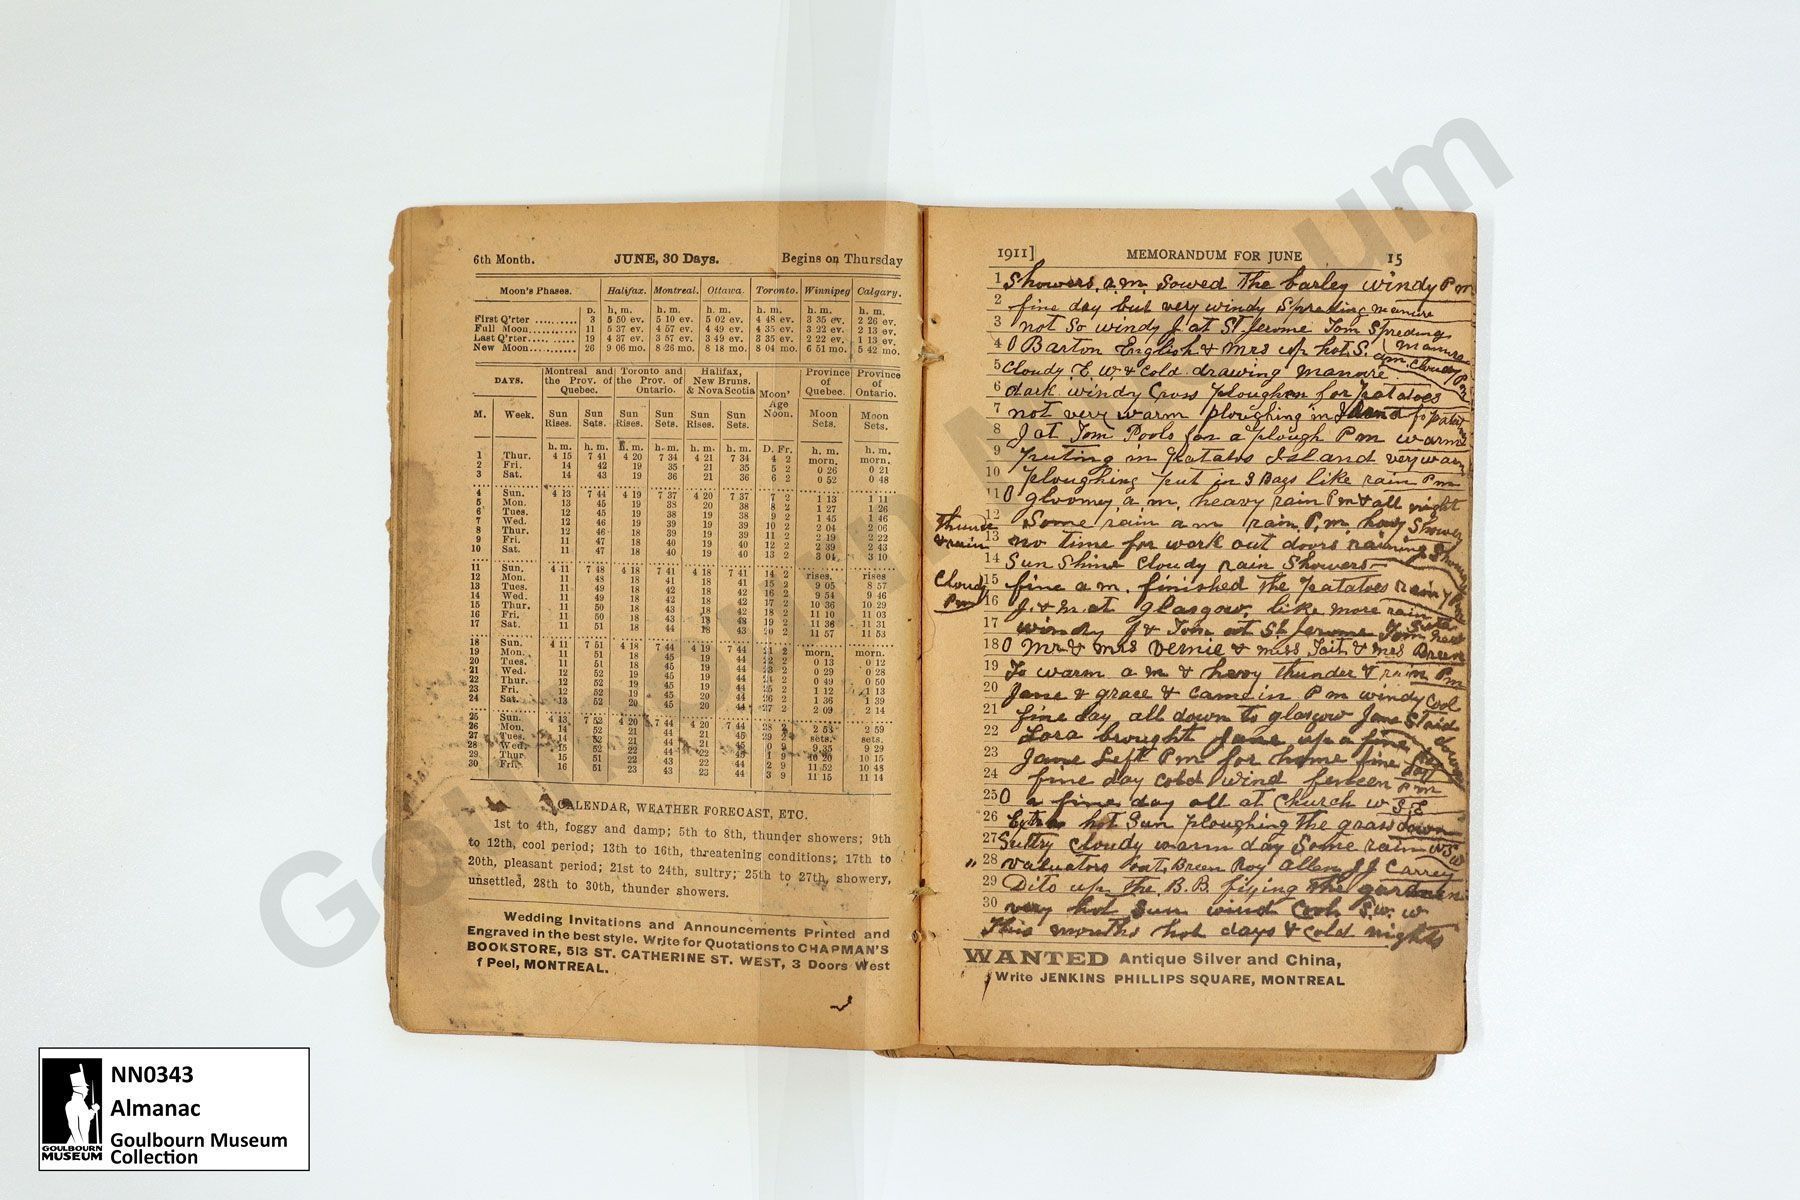 6th Month. JUNE, 30 Days. Begins on Thursday
Moon's Phases. Halifax. Montreal. Ottawa. Toronto. Winnipeg Calgary.
D. h. m. h. m. h. m. h. m. h. m. h. m.
First Q'rter 3 5 50 ev. 5 10 ev. 5 02 ev. 4 48 ev. 3 35 ev. 2 26 ev.
Full Moon 11 5 37 ev. 4 57 ev. 4 49 ev. 4 35 ev. 3 22 ev. 2 13 ev.
Last Q'rter 19 4 37 ev. 3 57 ev. 3 49 ev. 3 35 ev. 2 22 ev. 1 13 ev.
New Moon 26 9 06 mo. 8 26 mo. 8 18 mo. 8 04 mo. 6 51 mo. 5 42 mo.
DAYS. Montreal and the Prov. of Quebec. Toronto and the Prov. of Ontario. Halifax, New Bruns. & Nova Scotia Moon' Age Noon. Province of Quebec. Province of Ontario.
M. Week. Sun Rises. Sun Sets. Sun Rises. Sun Sets. Sun Rises. Sun Sets. Moon Sets. Moon Sets.
h. m. h. m. h. m. h. m. h. m. h. m. D. Fr. h. m. h. m.
1 Thur. 4 15 7 41 4 20 7 34 4 21 7 34 4 2 morn. morn.
2 Fri. 14 42 19 35 21 35 5 2 0 26 0 21
3 Sat. 14 43 19 36 21 36 6 2 0 52 0 48
4 Sun. 4 13 7 44 4 19 7 37 4 20 7 37 7 2 1 13 1 11
5 Mon. 13 45 19 38 20 38 8 2 1 27 1 26
6 Tues. 12 45 19 38 19 38 9 2 1 45 1 46
7 Wed. 12 46 19 39 19 39 10 2 2 04 2 06
8 Thur. 12 46 18 39 19 39 11 2 2 19 2 22
9 Fri. 11 47 18 40 19 40 12 2 2 39 2 43
10 Sat. 11 47 18 40 19 40 13 2 3 04 3 10
11 Sun. 4 11 7 48 4 18 7 41 4 18 7 41 14 2 rises. rises
12 Mon. 11 48 18 41 18 41 15 2 9 05 8 57
13 Tues. 11 49 18 42 18 42 16 2 9 54 9 46
14 Wed. 11 49 18 42 18 42 17 2 10 36 10 29
15 Thur. 11 50 18 43 18 42 18 2 11 10 11 03
16 Fri. 11 50 18 43 18 43 19 2 11 36 11 31
17 Sat. 11 51 18 44 18 43 20 2 11 57 11 53
18 Sun. 4 11 7 51 4 18 7 44 4 19 7 44 21 2 morn. morn.
19 Mon. 11 51 18 45 19 44 22 2 0 13 0 12
20 Tues. 11 51 18 45 19 44 23 2 0 29 0 28
21 Wed. 12 52 19 45 19 44 24 2 0 49 0 50
22 Thur. 12 52 19 45 19 44 25 2 1 12 1 13
23 Fri. 12 52 19 45 20 44 26 2 1 36 1 39
24 Sat. 13 52 20 45 20 44 27 2 2 09 2 14
25 Sun. 4 13 7 52 4 20 7 44 4 20 7 44 28 2 2 53 2 59
26 Mon. 14 52 21 44 21 45 29 2 sets. sets.
27 Tues. 14 52 21 44 21 45 0 9 9 35 9 29
28 Wed. 15 52 21 44 21 45 1 9 10 20 10 15
29 Thur 15 51 22 43 22 44 2 9 11 52 10 48
30 Fri. 16 51 23 43 23 44 3 9 11 15 11 14
CALENDAR, WEATHER FORECAST, ETC.
1st to 4th, foggy and damp; 5th to 8th, thunder showers; 9th
to 12th, cool period; 13th to 16th, threatening conditions; 17th to
20th, pleasant period; 21st to 24th, sultry; 25th to 27th, showery,
unsettled, 28th to 30th, thunder showers.
Wedding Invitations and Announcements Printed and
Engraved in the best style. Write for Quotations to CHAPMAN'S
BOOKSTORE, 513 ST. CATHERINE ST. WEST, 3 Doors West
f Peel, MONTREAL.
1911] MEMORANDUM FOR JUNE 15
1 Showers a.m. Sowed the barley windy P m
2 fine day but very windy Spreding manure
3 not So windy J at St. Jerome Tom Spreding manure
4 O Barton English & Mrs up hot S. a m cloudy P m
5 Cloudy E. W & Cold drawing manure
6 dark windy Cross Ploughen for Patatoes
7 not very warm ploughing in Island fo Patat
8 J at Tom Pools for a plough P m warm
9 Puting in Patatos Island very warm
10 Ploughing put in 3 Bags like rain P m
11 O gloomey a. m. heavy rain P m & all night
12 Some rain a m rain P. m. heavy Shower
Thunde & rain
13 no time for work out doors raining & Showery
14 Sun Shine Cloudy rain Showers
Cloudy P m
15 fine a m. finished the Patatoes rainy P m
16 J. & M. at Glasgow. like more rain
17 windy J & Tom at St Jerome Tom
18 O Mr & Mrs Vernie & miss Tait & Mrs Breen
19 To warm a m & heavy thunder & rain P m
20 Jane & grace & came in P m windy Cool
21 fine day all down to glasgow Jane Staid down
22 Lora brought Jane up a fine day
23 Jane Left P m for home fine day
24 fine day cold wind fenceen P m
25 O a fine day all at Church w S E
26 Extra hot Sun ploughing the grass down
27 Sultry Cloudy warm day Some rain W S W
" 28 valuators Pat. Breen Roy allen J J Carrey
29 Dito up the B. B. fixing the garden
30 very hot Sun wind Cool S. w. w
This months hot days & cold nights
WANTED Antique Silver and China,
Write JENKINS PHILLIPS SQUARE, MONTREAL
Goulbourn Museum
NN0343
Almanac
Goulbourn Museum
Collection
GOULBOURN
MUSEUM